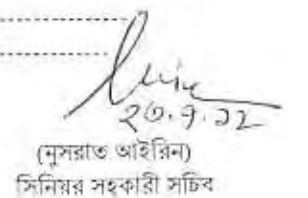 ২৩.৭.১২
(নুসরাত আইরিন)
সিনিয়র সহকারী সচিব